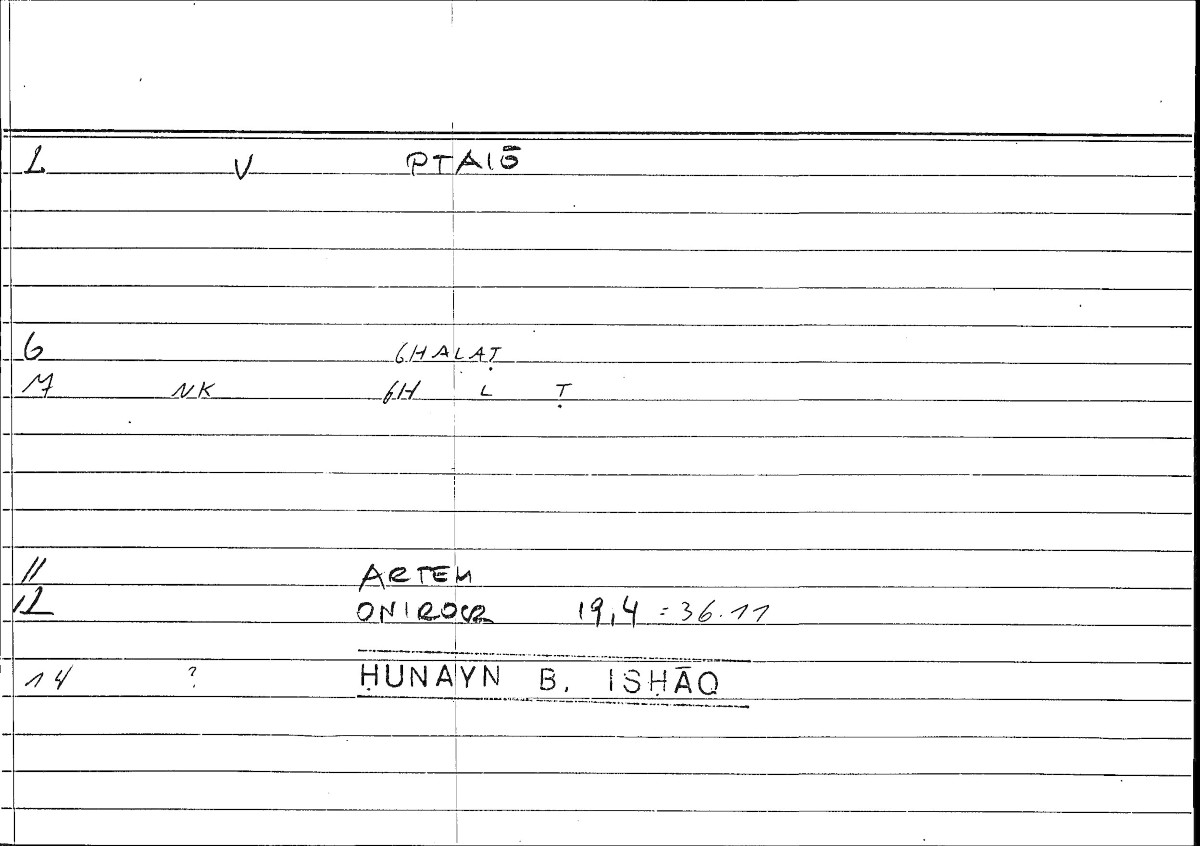 2 V PTAIŌ
6 GHALAṬ
7 NK GH L Ṭ
11 ARTEM
12 ONIROCR 19,4 = 36.11
14 ? ḤUNAYN B. ISḤĀQ